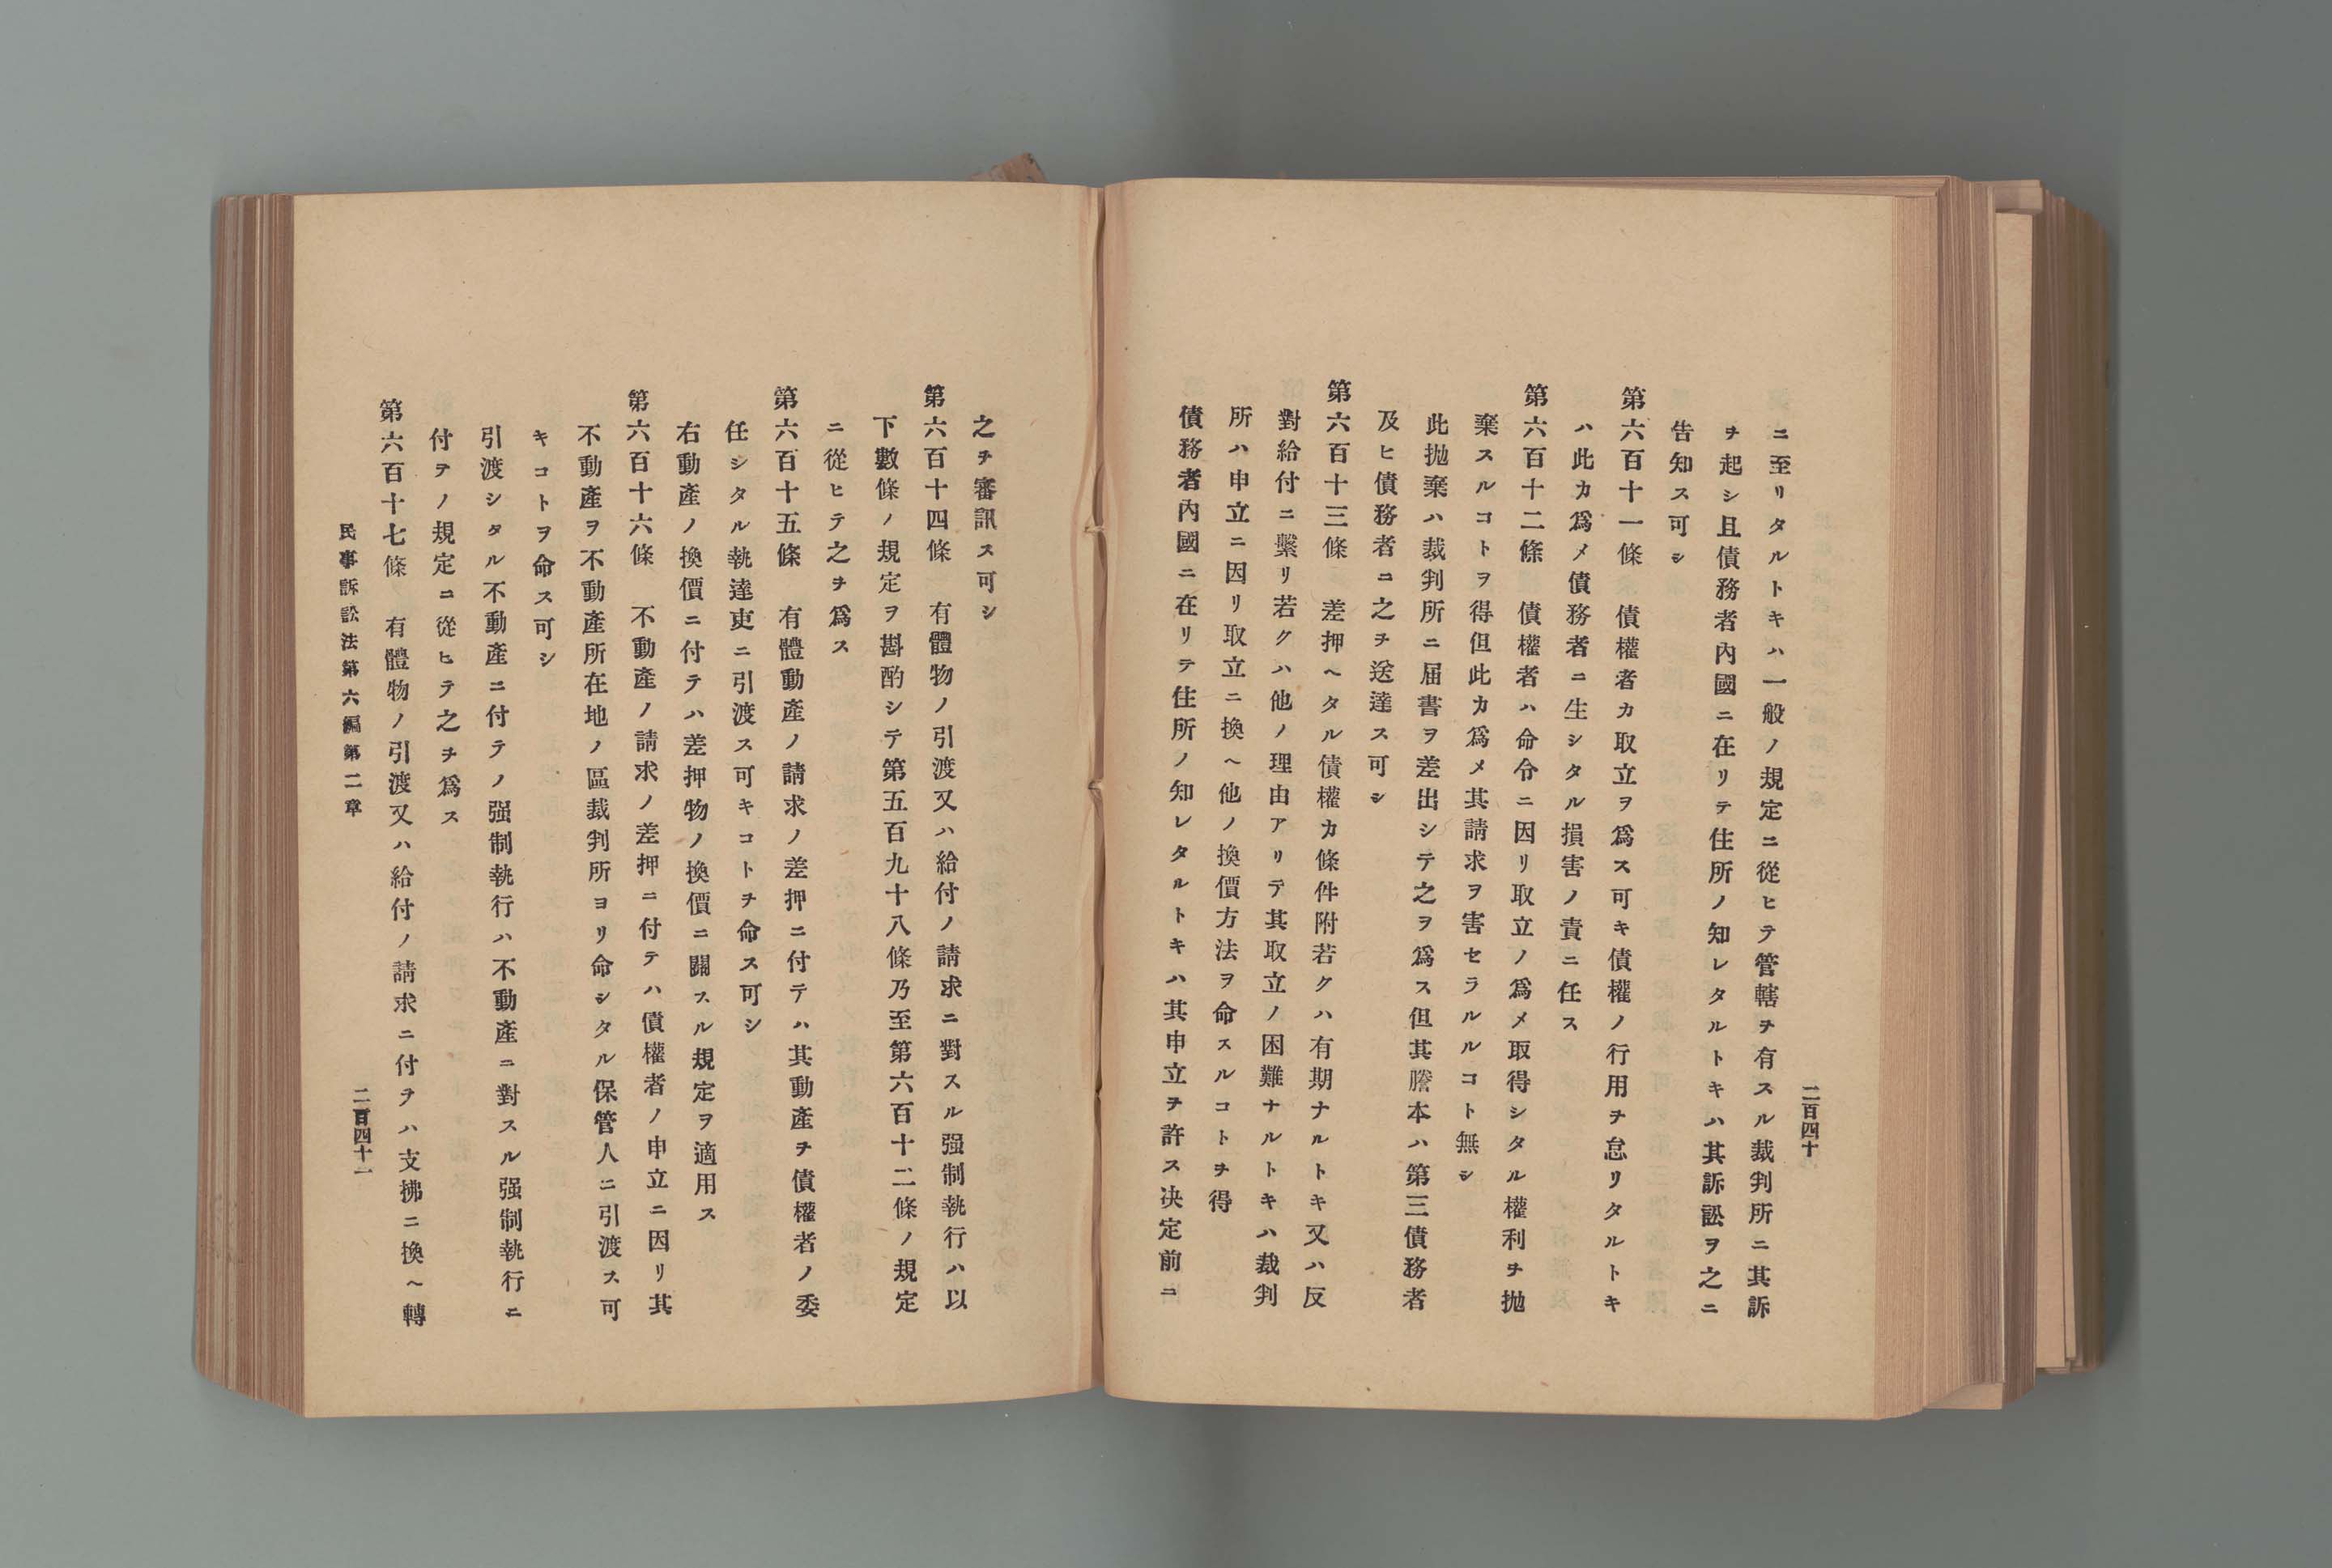 二百四十
ニ至リタルトキハ一般ノ規定ニ從ヒテ管轄ヲ有スル裁判所ニ其訴
ヲ起シ且債務者內國ニ在リテ住所ノ知レタルトキハ其訴訟ヲ之ニ
告知ス可シ
第六百十一條 債權者カ取立ヲ爲ス可キ債權ノ行用ヲ怠リタルトキ
ハ此カ爲メ債務者ニ生シタル損害ノ責ニ任ス
第六百十二條 債權者ハ命令ニ因リ取立ノ爲メ取得シタル權利ヲ抛
棄スルコトヲ得但此カ爲メ其請求ヲ害セラルルコト無シ
此抛棄ハ裁判所ニ届書ヲ差出シテ之ヲ爲ス但其謄本ハ第三債務者
及ヒ債務者ニ之ヲ送達ス可シ
第六百十三條 差押ヘタル債權カ條件附若クハ有期ナルトキ又ハ反
對給付ニ繫リ若クハ他ノ理由アリテ其取立ノ困難ナルトキハ裁判
所ハ申立ニ因リ取立ニ換ヘ他ノ換價方法ヲ命スルコトヲ得
債務者內國ニ在リテ住所ノ知レタルトキハ其申立ヲ許ス决定前ニ
之ヲ審訊ス可シ
第六百十四條 有體物ノ引渡又ハ給付ノ請求ニ對スル强制執行ハ以
下數條ノ規定ヲ斟酌シテ第五百九十八條乃至第六百十二條ノ規定
ニ從ヒテ之ヲ爲ス
第六百十五條 有體動產ノ請求ノ差押ニ付テハ其動產ヲ債權者ノ委
任シタル執達吏ニ引渡ス可キコトヲ命ス可シ
右動產ノ換價ニ付テハ差押物ノ換價ニ關スル規定ヲ適用ス
第六百十六條 不動產ノ請求ノ差押ニ付テハ債權者ノ申立ニ因リ其
不動產ヲ不動產所在地ノ區裁判所ヨリ命シタル保管人ニ引渡ス可
キコトヲ命ス可シ
引渡シタル不動產ニ付テノ强制執行ハ不動產ニ對スル强制執行ニ
付テノ規定ニ從ヒテ之ヲ爲ス
第六百十七條 有體物ノ引渡又ハ給付ノ請求ニ付テハ支拂ニ換ヘ轉
民事訴訟法第六編第二章
二百四十一